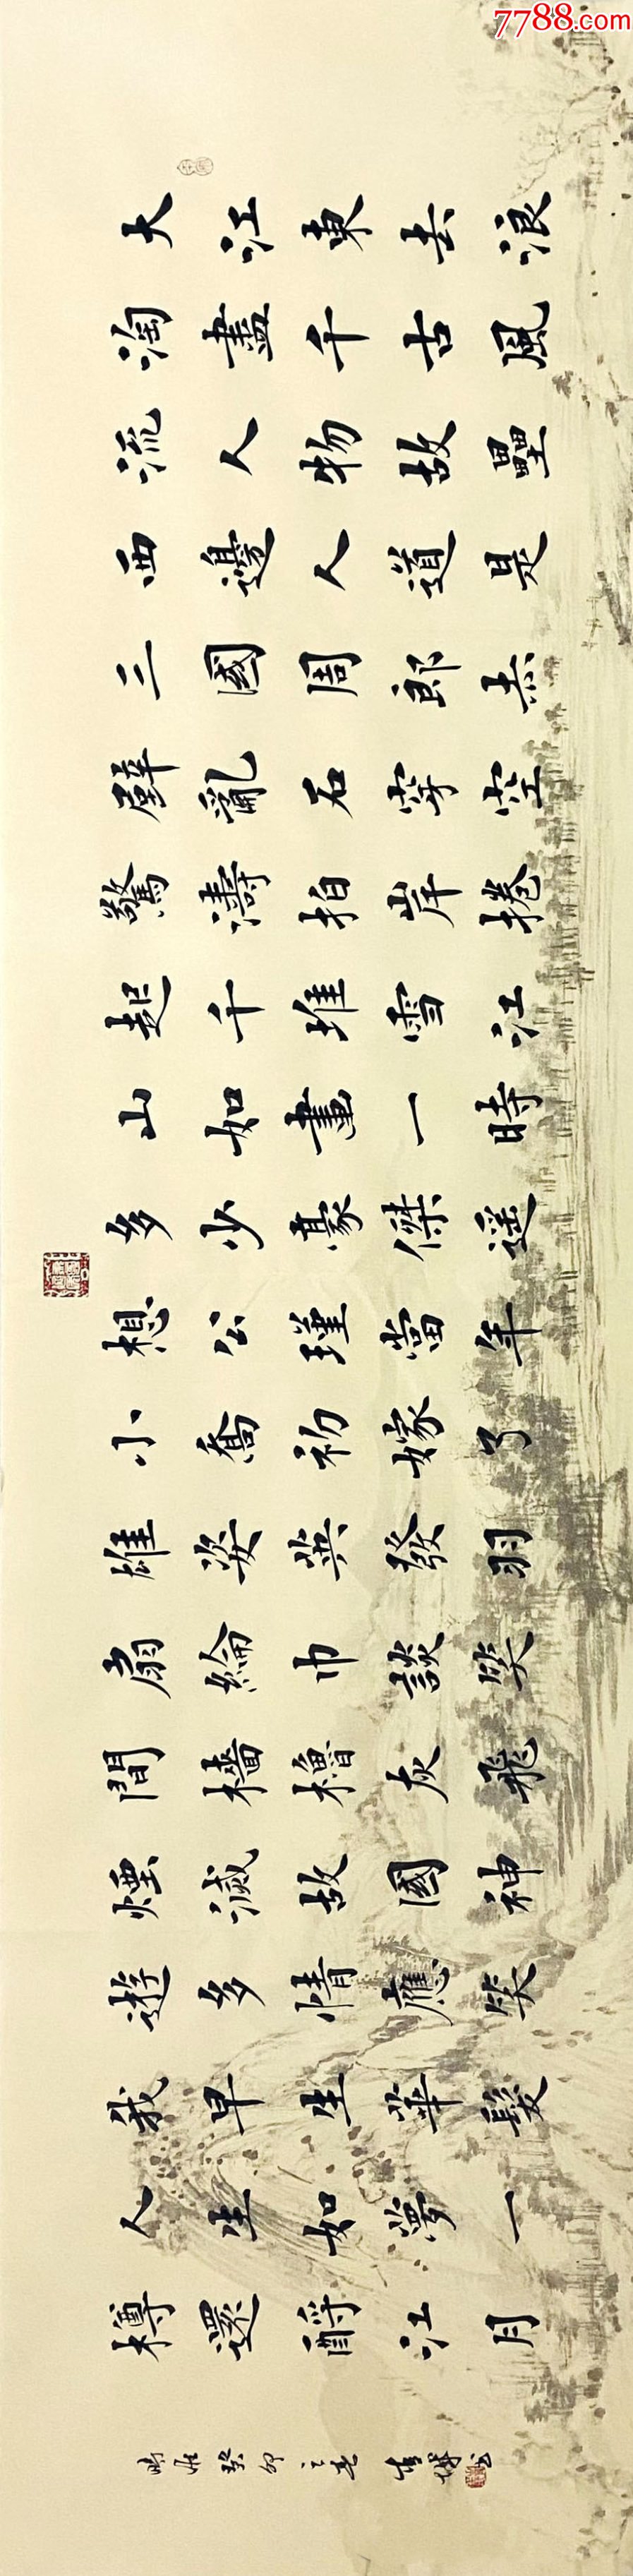 7788.com
大江東去浪
淘盡千古風
流人物故壘
西邊人道是
三國周郎赤
壁亂石穿空
驚濤拍岸捲
起千堆雪江
山如畫一時
多少豪傑遥
想公瑾當年
小喬初嫁了
雄姿英發羽
扇綸巾談笑
間檣櫓灰飛
煙滅故國神
遊多情應笑
我早生華髮
人生如夢一
樽還酹江月
癸卯